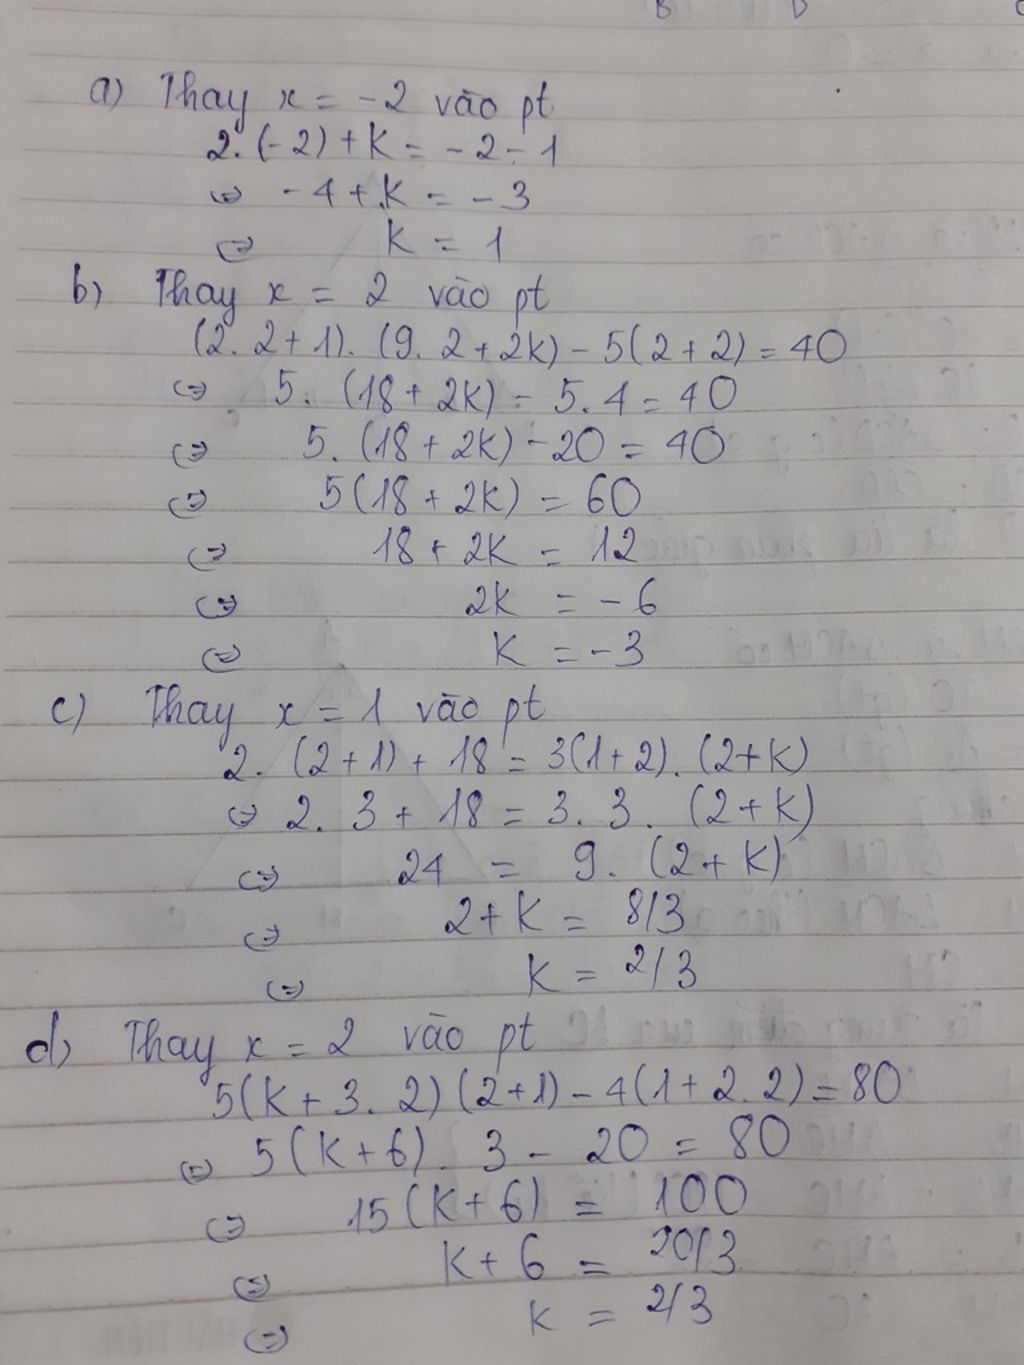 a) Thay x = -2 vào pt
2.(-2) + K = -2 - 1
⇔ -4 + K = -3
⇔ K = 1
b) Thay x = 2 vào pt
(2.2+1).(9.2+2K) - 5(2+2) = 40
⇔ 5.(18+2K) - 5.4 = 40
⇔ 5.(18+2K) - 20 = 40
⇔ 5(18+2K) = 60
⇔ 18 + 2K = 12
⇔ 2K = -6
⇔ K = -3
c) Thay x = 1 vào pt
2.(2+1) + 18 = 3(1+2).(2+K)
⇔ 2.3 + 18 = 3.3.(2+K)
⇔ 24 = 9.(2+K)
⇔ 2+K = 8/3
⇔ K = 2/3
d) Thay x = 2 vào pt
5(K+3.2)(2+1) - 4(1+2.2) = 80
⇔ 5(K+6).3 - 20 = 80
⇔ 15(K+6) = 100
⇔ K+6 = 20/3
⇔ K = 2/3